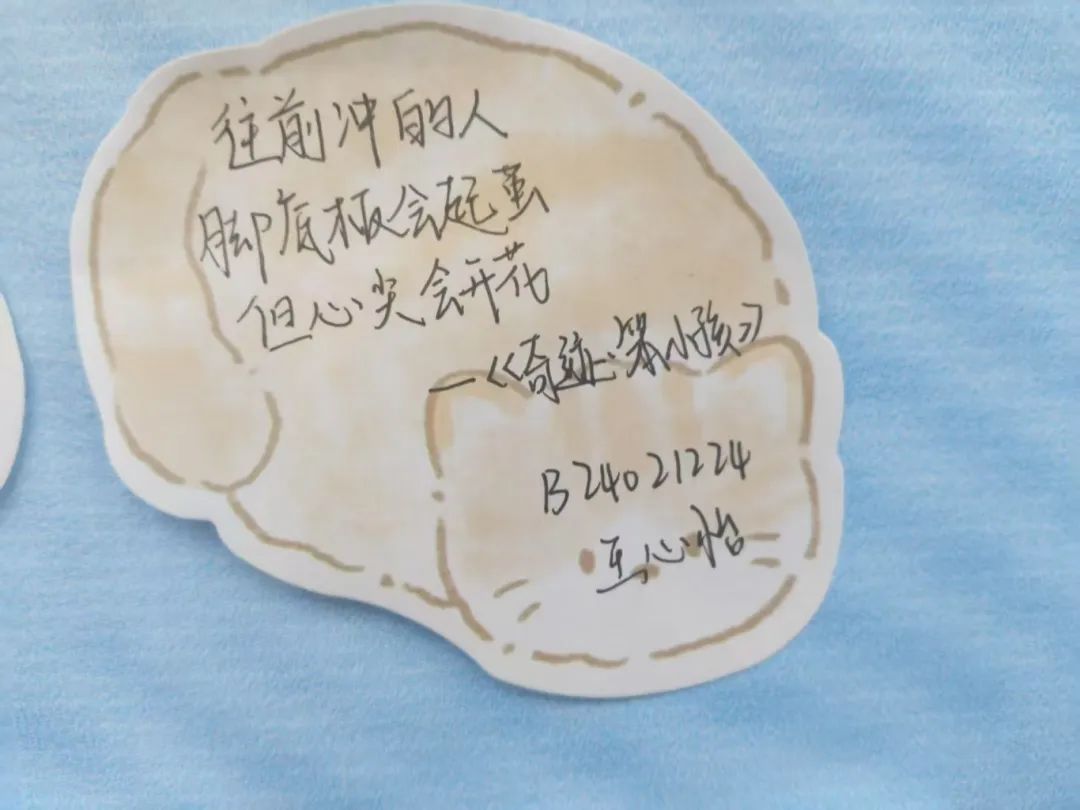 往前冲的人
脚底板会起茧
但心尖会开花
—《奇迹·笨小孩》
B24021224
心怡